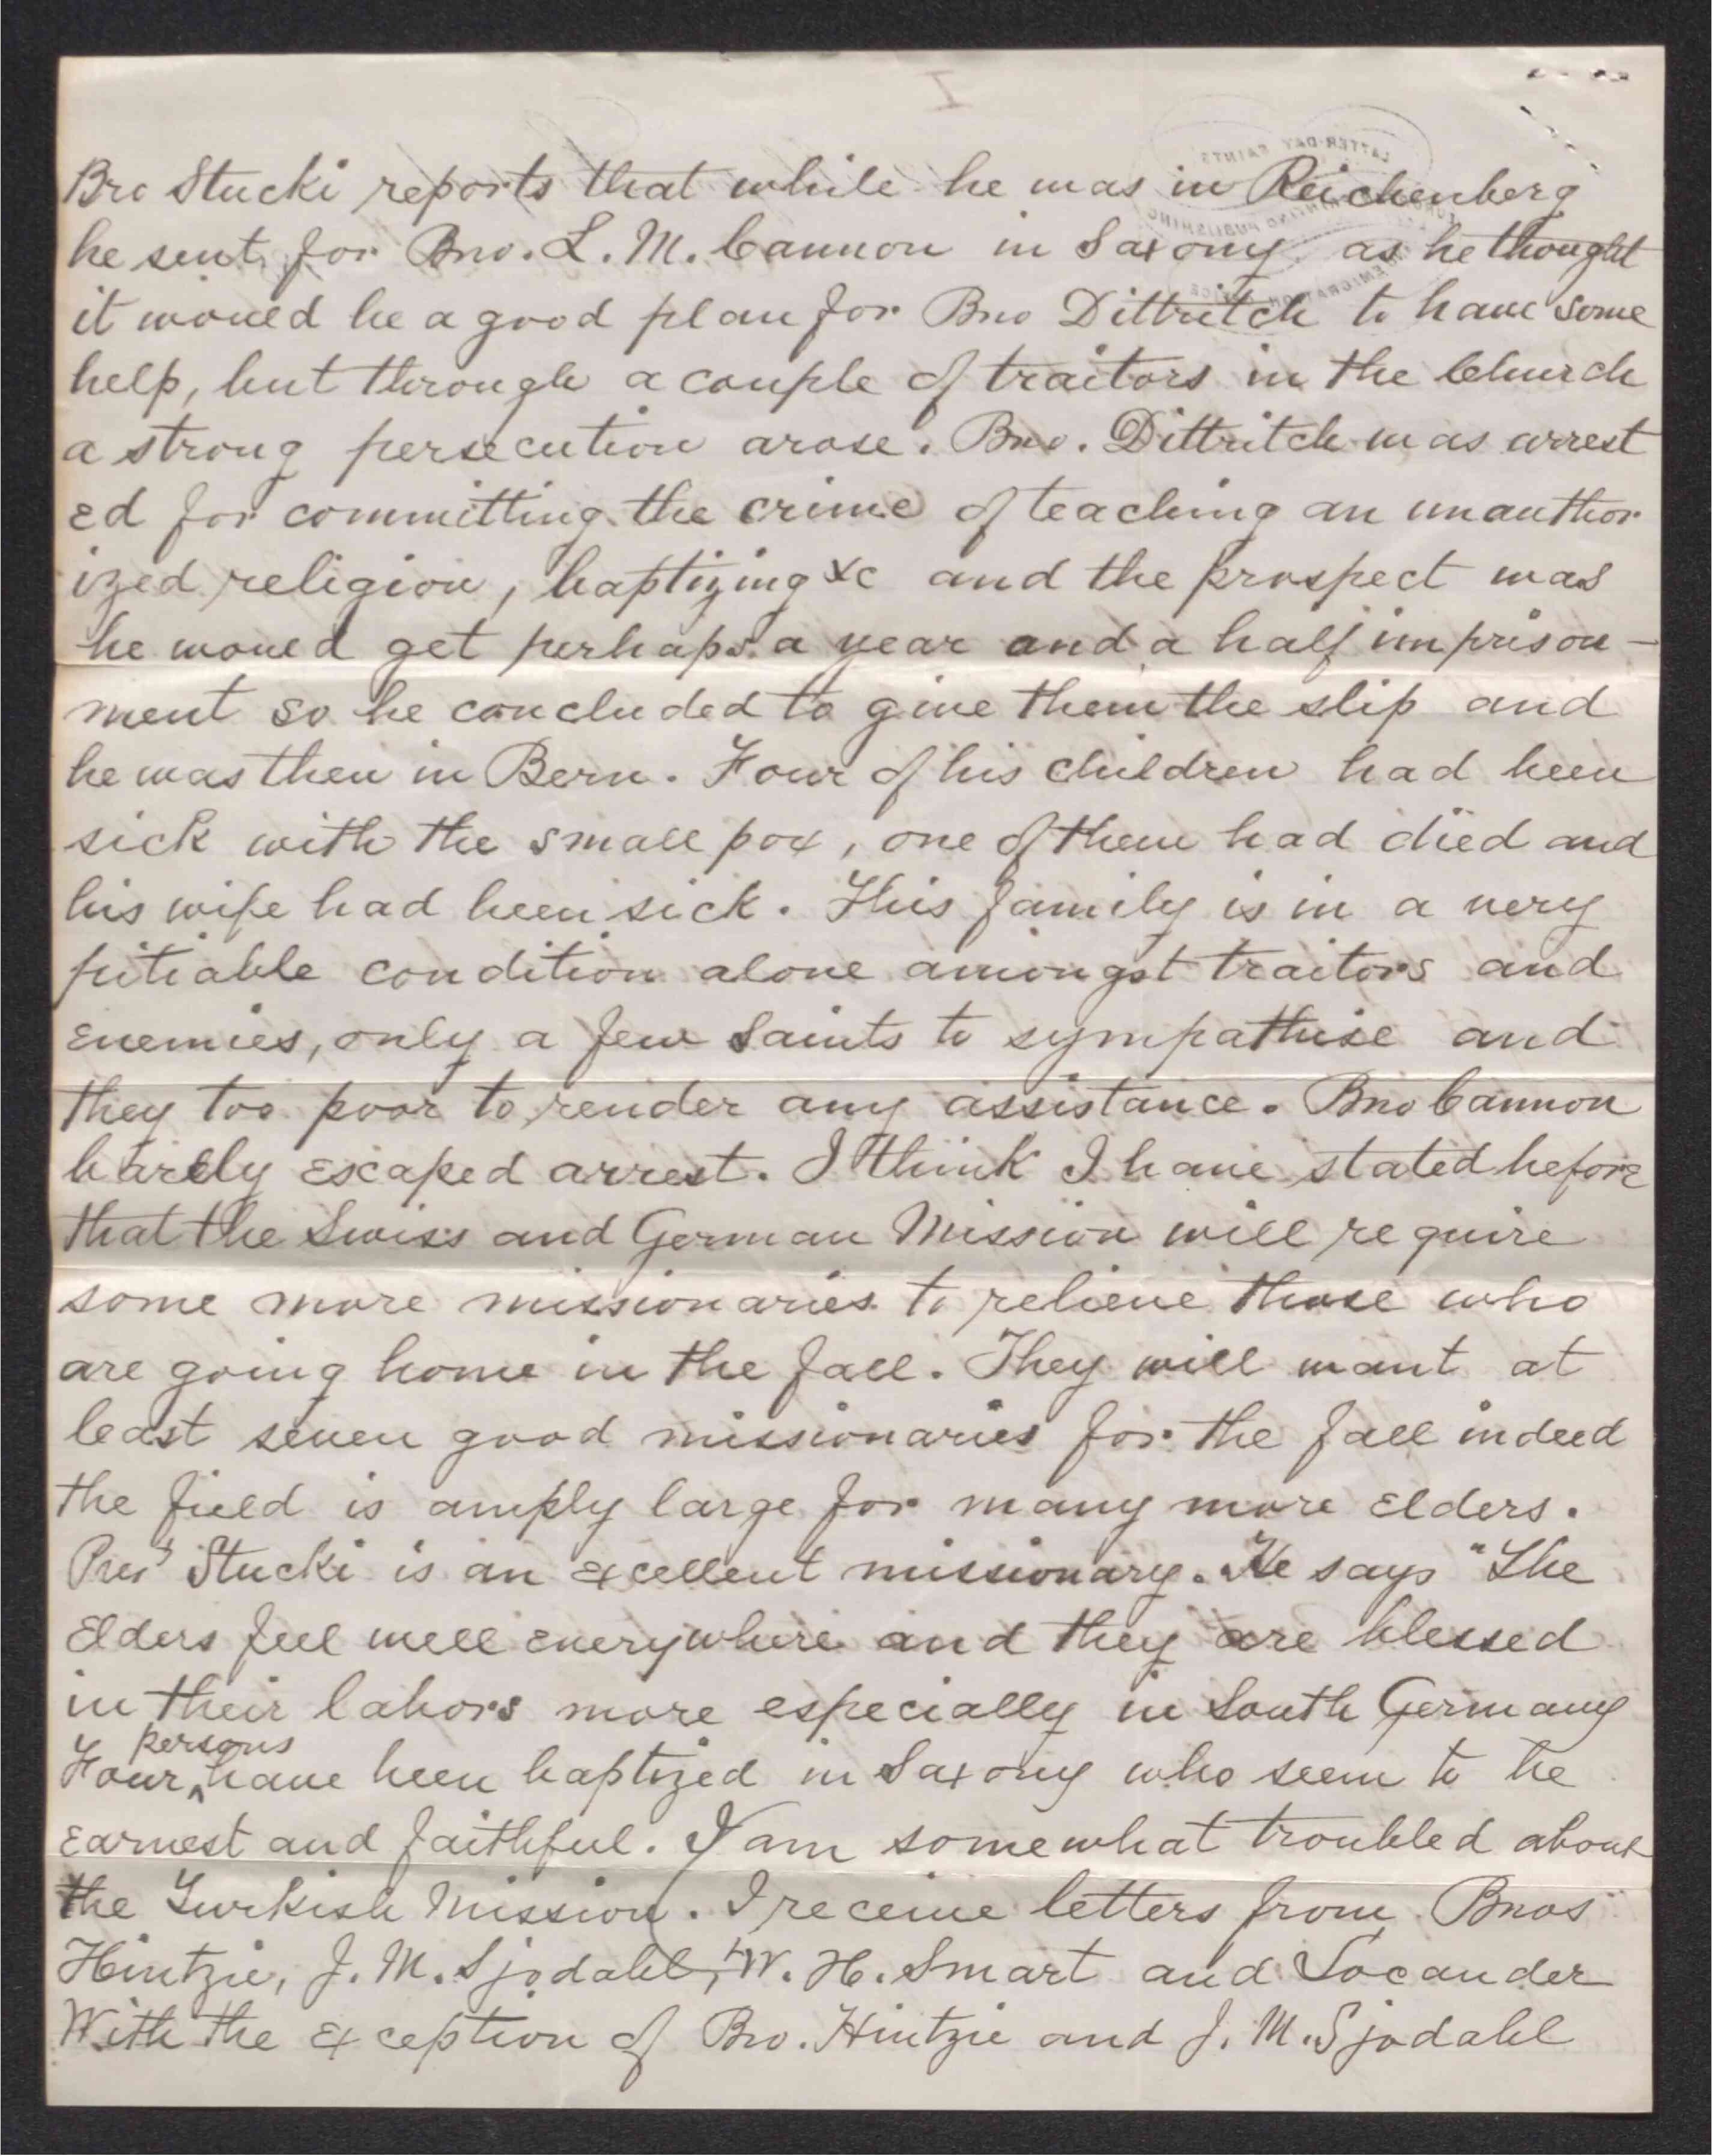 Bro Stucki reports that while he was in Reichenberg
he sent for Bro. L. M. Cannon in Saxony as he thought
it would be a good plan for Bro Dittritch to have some
help, but through a couple of traitors in the Church
a strong persecution arose. Bro. Dittritch was arrest
ed for committing the crime of teaching an unauthor
ized religion, baptizing &c and the prospect was
he would get perhaps a year and a half imprison-
ment so he concluded to give them the slip and
he was then in Bern. Four of his children had been
sick with the small pox, one of them had died and
his wife had been sick. This family is in a very
pitiable condition alone amongst traitors and
enemies, only a few Saints to sympathise and
they too poor to render any assistance. Bro Cannon
barely escaped arrest. I think I have stated before
that the Swiss and German Mission will require
some more missionaries to relieve those who
are going home in the fall. They will want at
least seven good missionaries for the fall indeed
the field is amply large for many more Elders.
Pres' Stucki is an excellent missionary. He says "The
Elders feel well everywhere and they are blessed
in their labors more especially in South Germany
persons
Four ^ have been baptized in Saxony who seem to be
earnest and faithful. I am somewhat troubled about
the Turkish Mission. I receive letters from Bros
Hintzie, J. M. Sjodahl, W. H. Smart and Locander
With the exception of Bro. Hintzie and J. M. Sjodahl